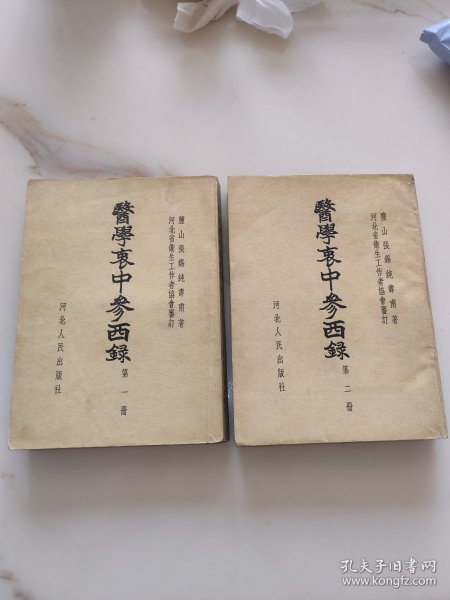 鹽山張錫純壽甫著
河北省衞生工作者協會審訂
醫學衷中參西錄
第一冊
河北人民出版社
鹽山張錫純壽甫著
河北省衞生工作者協會審訂
醫學衷中參西錄
第二冊
河北人民出版社
孔夫子旧书网
www.kongfz.com